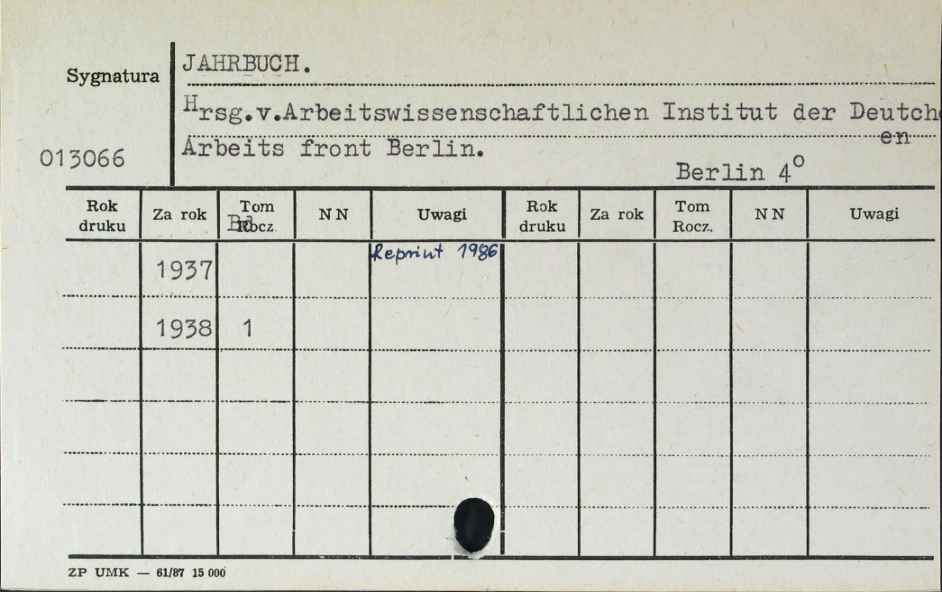 JAHRBUCH.
Sygnatura
Hrsg.v.Arbeitswissenschaftlichen Institut der Deutche
en
Arbeits front Berlin.
013066
Berlin 4°
Rok druku Za rok Tom Rocz. Bd. NN Uwagi Rok druku Za rok Tom Rocz. NN Uwagi
1937 Reprint 1986
1938 1
ZP UMK — 61/87 15 000